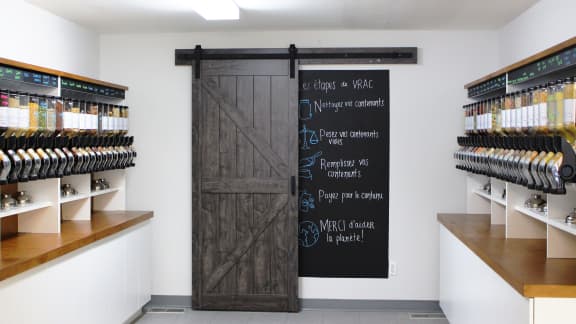 es étapes du VRAC
Nettoyez vos contenants
Pesez vos contenants
vides
Remplissez vos
contenants
Payez pour le contenu
MERCI d'aider
la planète!